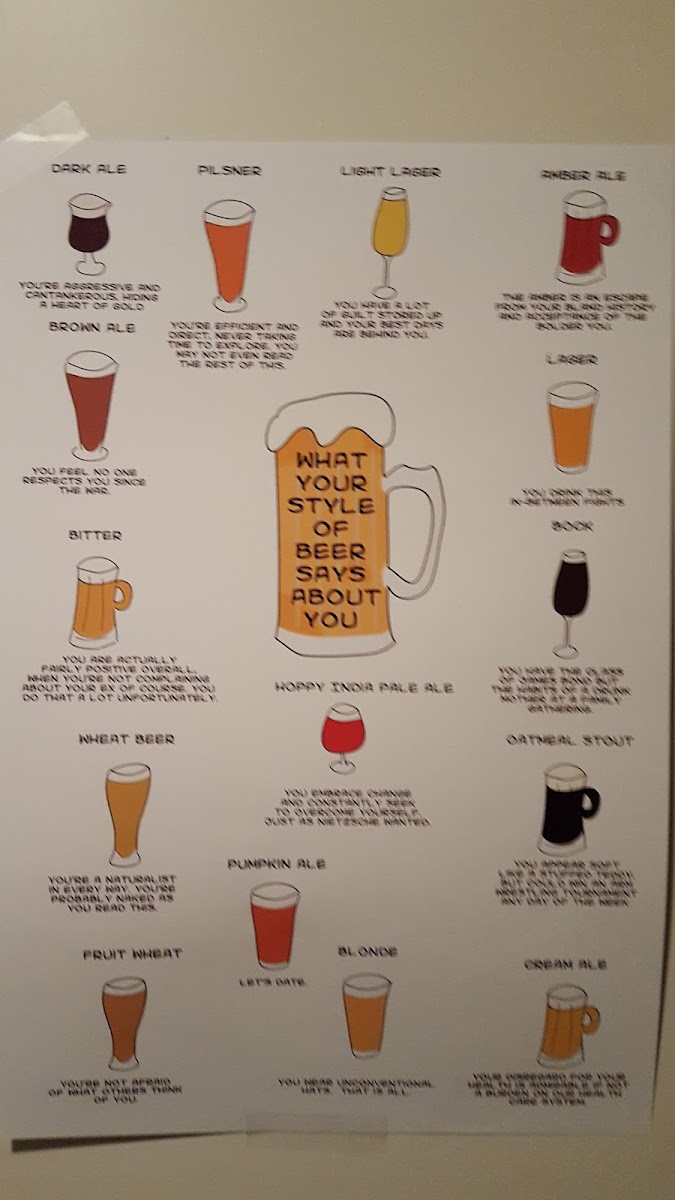 DARK ALE
YOU'RE AGGRESSIVE AND
CANTANKEROUS, HIDING
A HEART OF GOLD
PILSNER
YOU'RE EFFICIENT AND
DIRECT, NEVER TAKING
TIME TO EXPLORE. YOU
MAY NOT EVEN READ
THE REST OF THIS.
LIGHT LAGER
YOU HAVE A LOT
OF GUILT STORED UP
AND YOUR BEST DAYS
ARE BEHIND YOU.
AMBER ALE
THE AMBER IS AN ESCAPE
FROM YOUR BLAND HISTORY
AND ACCEPTANCE OF THE
BOLDER YOU.
BROWN ALE
YOU FEEL NO ONE
RESPECTS YOU SINCE
THE WAR.
LAGER
YOU DRINK THIS
IN-BETWEEN FIGHTS
WHAT
YOUR
STYLE
OF
BEER
SAYS
ABOUT
YOU
BITTER
YOU ARE ACTUALLY
FAIRLY POSITIVE OVERALL,
WHEN YOU'RE NOT COMPLAINING
ABOUT YOUR EX OF COURSE. YOU
DO THAT A LOT UNFORTUNATELY.
BOCK
YOU HAVE THE CLASS
OF JAMES BOND BUT
THE HABITS OF A DRUNK
MOTHER AT A FAMILY
GATHERING.
HOPPY INDIA PALE ALE
YOU EMBRACE CHANGE
AND CONSTANTLY SEEK
TO OVERCOME YOURSELF,
JUST AS NIETZSCHE WANTED.
WHEAT BEER
YOU'RE A NATURALIST
IN EVERY WAY. YOU'RE
PROBABLY NAKED AS
YOU READ THIS.
OATMEAL STOUT
YOU APPEAR SOFT
LIKE A STUFFED TEDDY,
BUT COULD WIN AN ARM
WRESTLING TOURNAMENT
ANY DAY OF THE WEEK
PUMPKIN ALE
LET'S DATE.
FRUIT WHEAT
YOU'RE NOT AFRAID
OF WHAT OTHERS THINK
OF YOU.
BLONDE
YOU WEAR UNCONVENTIONAL
HATS. THAT IS ALL.
CREAM ALE
YOUR DISREGARD FOR YOUR
HEALTH IS ADMIRABLE IF NOT
A BURDEN ON OUR HEALTH
CARE SYSTEM.